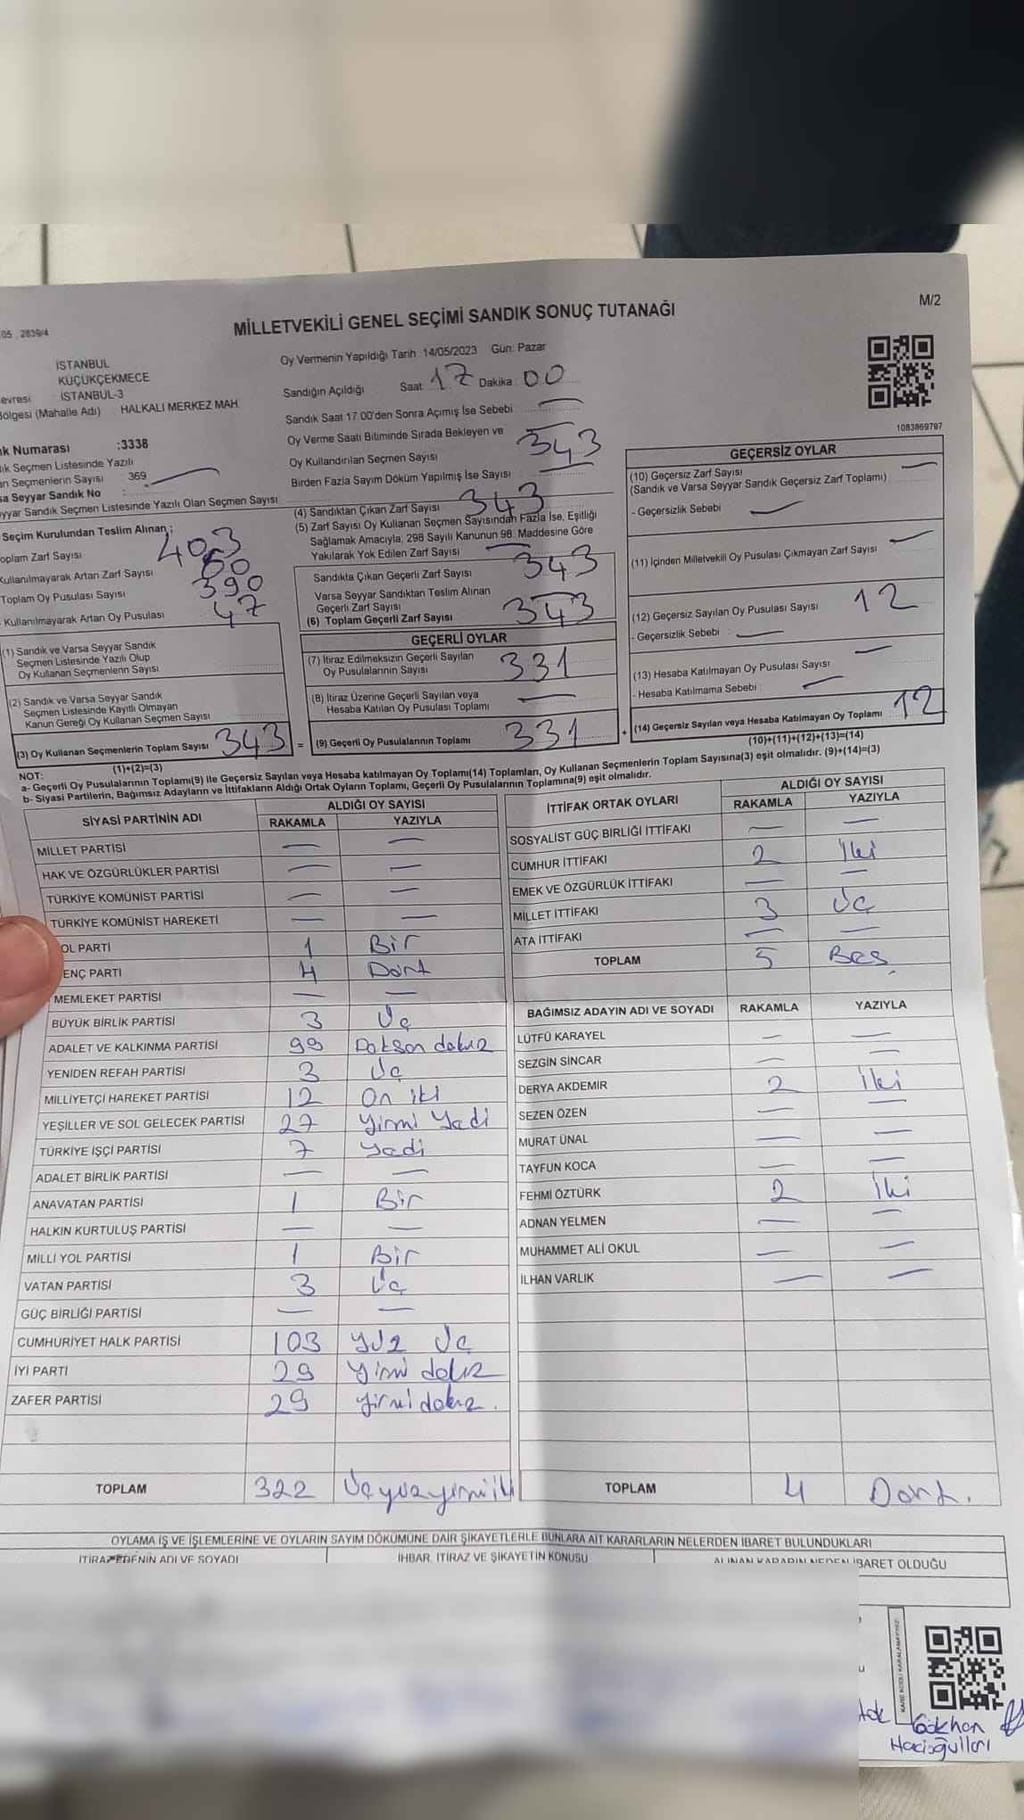 M/2
05 . 2839/4
MİLLETVEKİLİ GENEL SEÇİMİ SANDIK SONUÇ TUTANAĞI
İSTANBUL
KÜÇÜKÇEKMECE
evresi İSTANBUL-3
Bölgesi (Mahalle Adı) HALKALI MERKEZ MAH.
ık Numarası :3338
ık Seçmen Listesinde Yazılı
an Seçmenlerin Sayısı 369
sa Seyyar Sandık No :
eyyar Sandık Seçmen Listesinde Yazılı Olan Seçmen Sayısı
Oy Vermenin Yapıldığı Tarih: 14/05/2023 Gün: Pazar
Sandığın Açıldığı Saat 17 Dakika 00
Sandık Saat 17.00'den Sonra Açımış İse Sebebi —
Oy Verme Saati Bitiminde Sırada Bekleyen ve
Oy Kullandırılan Seçmen Sayısı 343
Birden Fazla Sayım Döküm Yapılmış İse Sayısı —
1083869797
Seçim Kurulundan Teslim Alınan ;
oplam Zarf Sayısı 403
Kullanılmayarak Artan Zarf Sayısı 60
Toplam Oy Pusulası Sayısı 390
Kullanılmayarak Artan Oy Pusulası 47
(1) Sandık ve Varsa Seyyar Sandık
Seçmen Listesinde Yazılı Olup
Oy Kullanan Seçmenlerin Sayısı
(2) Sandık ve Varsa Seyyar Sandık
Seçmen Listesinde Kayıtlı Olmayan
Kanun Gereği Oy Kullanan Seçmen Sayısı
(3) Oy Kullanan Seçmenlerin Toplam Sayısı 343 =
(1)+(2)=(3)
(4) Sandıktan Çıkan Zarf Sayısı 343
(5) Zarf Sayısı Oy Kullanan Seçmen Sayısından Fazla İse, Eşitliği
Sağlamak Amacıyla, 298 Sayılı Kanunun 98. Maddesine Göre
Yakılarak Yok Edilen Zarf Sayısı —
Sandıkta Çıkan Geçerli Zarf Sayısı 343
Varsa Seyyar Sandıktan Teslim Alınan
Geçerli Zarf Sayısı —
(6) Toplam Geçerli Zarf Sayısı 343
GEÇERLİ OYLAR
(7) İtiraz Edilmeksizin Geçerli Sayılan
Oy Pusulalarının Sayısı 331
(8) İtiraz Üzerine Geçerli Sayılan veya
Hesaba Katılan Oy Pusulası Toplamı —
(9) Geçerli Oy Pusulalarının Toplamı 331 +
GEÇERSİZ OYLAR
(10) Geçersiz Zarf Sayısı —
(Sandık ve Varsa Seyyar Sandık Geçersiz Zarf Toplamı)
- Geçersizlik Sebebi —
(11) İçinden Milletvekili Oy Pusulası Çıkmayan Zarf Sayısı —
(12) Geçersiz Sayılan Oy Pusulası Sayısı 12
- Geçersizlik Sebebi : —
(13) Hesaba Katılmayan Oy Pusulası Sayısı —
- Hesaba Katılmama Sebebi : —
(14) Geçersiz Sayılan veya Hesaba Katılmayan Oy Toplamı 12
(10)+(11)+(12)+(13)=(14)
NOT:
a- Geçerli Oy Pusulalarının Toplamı(9) ile Geçersiz Sayılan veya Hesaba katılmayan Oy Toplamı(14) Toplamları, Oy Kullanan Seçmenlerin Toplam Sayısına(3) eşit olmalıdır. (9)+(14)=(3)
b- Siyasi Partilerin, Bağımsız Adayların ve İttifakların Aldığı Ortak Oyların Toplamı, Geçerli Oy Pusulalarının Toplamına(9) eşit olmalıdır.
SİYASİ PARTİNİN ADI ALDIĞI OY SAYISI
RAKAMLA YAZIYLA
MİLLET PARTİSİ — —
HAK VE ÖZGÜRLÜKLER PARTİSİ — —
TÜRKİYE KOMÜNİST PARTİSİ — —
TÜRKİYE KOMÜNİST HAREKETİ — —
OL PARTİ 1 Bir
ENÇ PARTİ 4 Dört
MEMLEKET PARTİSİ — —
BÜYÜK BİRLİK PARTİSİ 3 Üç
ADALET VE KALKINMA PARTİSİ 99 Doksan dokuz
YENİDEN REFAH PARTİSİ 3 Üç
MİLLİYETÇİ HAREKET PARTİSİ 12 On iki
YEŞİLLER VE SOL GELECEK PARTİSİ 27 Yirmi Yedi
TÜRKİYE İŞÇİ PARTİSİ 7 Yedi
ADALET BİRLİK PARTİSİ — —
ANAVATAN PARTİSİ 1 Bir
HALKIN KURTULUŞ PARTİSİ — —
MİLLİ YOL PARTİSİ 1 Bir
VATAN PARTİSİ 3 Üç
GÜÇ BİRLİĞİ PARTİSİ — —
CUMHURİYET HALK PARTİSİ 103 Yüz Üç
İYİ PARTİ 29 Yirmi dokuz
ZAFER PARTİSİ 29 Yirmi dokuz.
TOPLAM 322 Üçyüzyirmiiki
İTTİFAK ORTAK OYLARI ALDIĞI OY SAYISI
RAKAMLA YAZIYLA
SOSYALİST GÜÇ BİRLİĞİ İTTİFAKI — —
CUMHUR İTTİFAKI 2 İki
EMEK VE ÖZGÜRLÜK İTTİFAKI — —
MİLLET İTTİFAKI 3 Üç
ATA İTTİFAKI — —
TOPLAM 5 Beş
BAĞIMSIZ ADAYIN ADI VE SOYADI RAKAMLA YAZIYLA
LÜTFÜ KARAYEL — —
SEZGİN SİNCAR — —
DERYA AKDEMİR 2 İki
SEZEN ÖZEN — —
MURAT ÜNAL — —
TAYFUN KOCA — —
FEHMİ ÖZTÜRK 2 İki
ADNAN YELMEN — —
MUHAMMET ALİ OKUL — —
İLHAN VARLIK — —
TOPLAM 4 Dört.
OYLAMA İŞ VE İŞLEMLERİNE VE OYLARIN SAYIM DÖKÜMÜNE DAİR ŞİKAYETLERLE BUNLARA AİT KARARLARIN NELERDEN İBARET BULUNDUKLARI
İTİRAZ EDENİN ADI VE SOYADI İHBAR, İTİRAZ VE ŞİKAYETİN KONUSU ALINAN KARARIN NEDEN İBARET OLDUĞU
Gökhan
Hacıoğulları